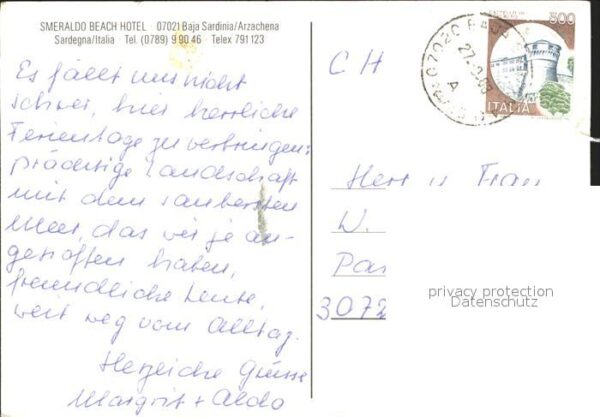 SMERALDO BEACH HOTEL · 07021 Baja Sardinia/Arzachena
Sardegna/Italia · Tel. (0789) 9 90 46 · Telex 791 123
Es fällt uns nicht
schwer, hier herrliche
Ferientage zu verbringen:
prächtige Landschaft
mit dem saubersten
Meer, das wir je an-
getroffen haben,
freundliche Leute,
weit weg vom Alltag.
Herzliche Grüsse
Margrit + Aldo
CH
07020 BAJA
500
ITALIA
Herr u Frau
W.
Pas
3072
privacy protection
Datenschutz